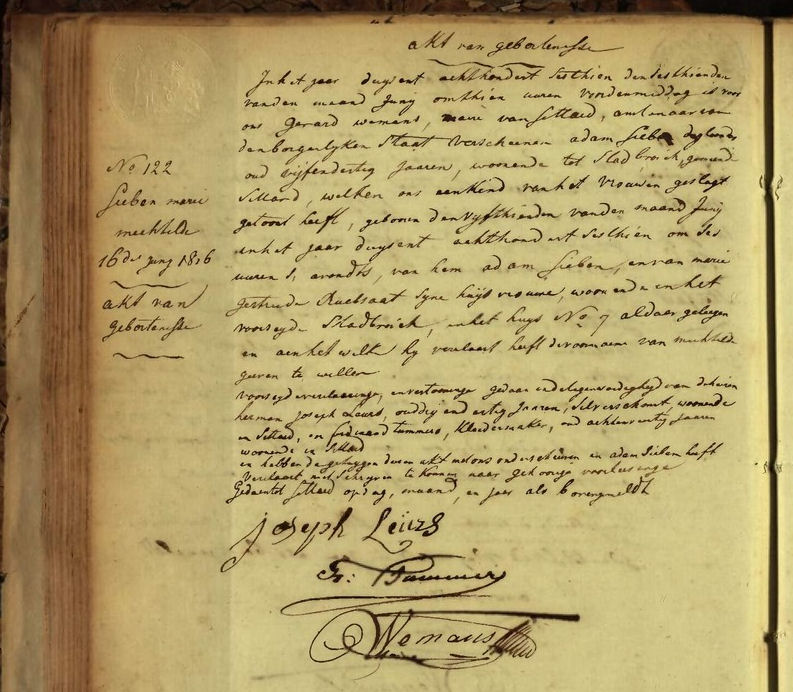 akt van geboortenisse
In het jaar duysent achthondert Sesthien den Sesthienden
van den maand Juny om thien uuren voordenmiddag is voor
ons Gerard Wemans, maire van Sittard, amtenaar van
den borgerlyken Staat Verscheenen adam Sieben daglooner
oud vijfendertig Jaaren, woonende tot Stadbroek, gemeende
Sittard, welken ons een kind van het Vrouwen geslagt
getoont heeft, gebooren den vyfthienden van den maand Juny
in het jaar duysent achthondert Sesthien om Ses
uuren S, avonds, van hem adam Sieben, en van marie
gertrude Ruebsaat Syne huysvrouwe, woonende in het
voorseyde Stadbroek, in het huys No 7 aldaer geleegen
en aen het welk hy verclaart heeft de voornaeme van mechtilde
geeven te willen
voorseyde verclaaringe, en vertooninge gedaan in de tegenwoordigheyd van de heeren
herman Joseph Leurs, oud dry en dertig Jaaren, woonende
en Sittard, en ferdinand Tummers, Kleedermaker, oud achtenveertig Jaaren
woonende in Sittard
en hebben de getuygen deesen akt met ons onderscheeven en adam Sieben heeft
Verclaart niet Schryven te konnen naer gehoorige voorleesinge
Gedaen tot Sittard op dag, maand, en jaer als bovengemeldt
Joseph Leurs
Fr: Tummers
Wemans
No 122
Sieben marie
mechtilde
16 de Juny 1816
akt van
geboortenisse